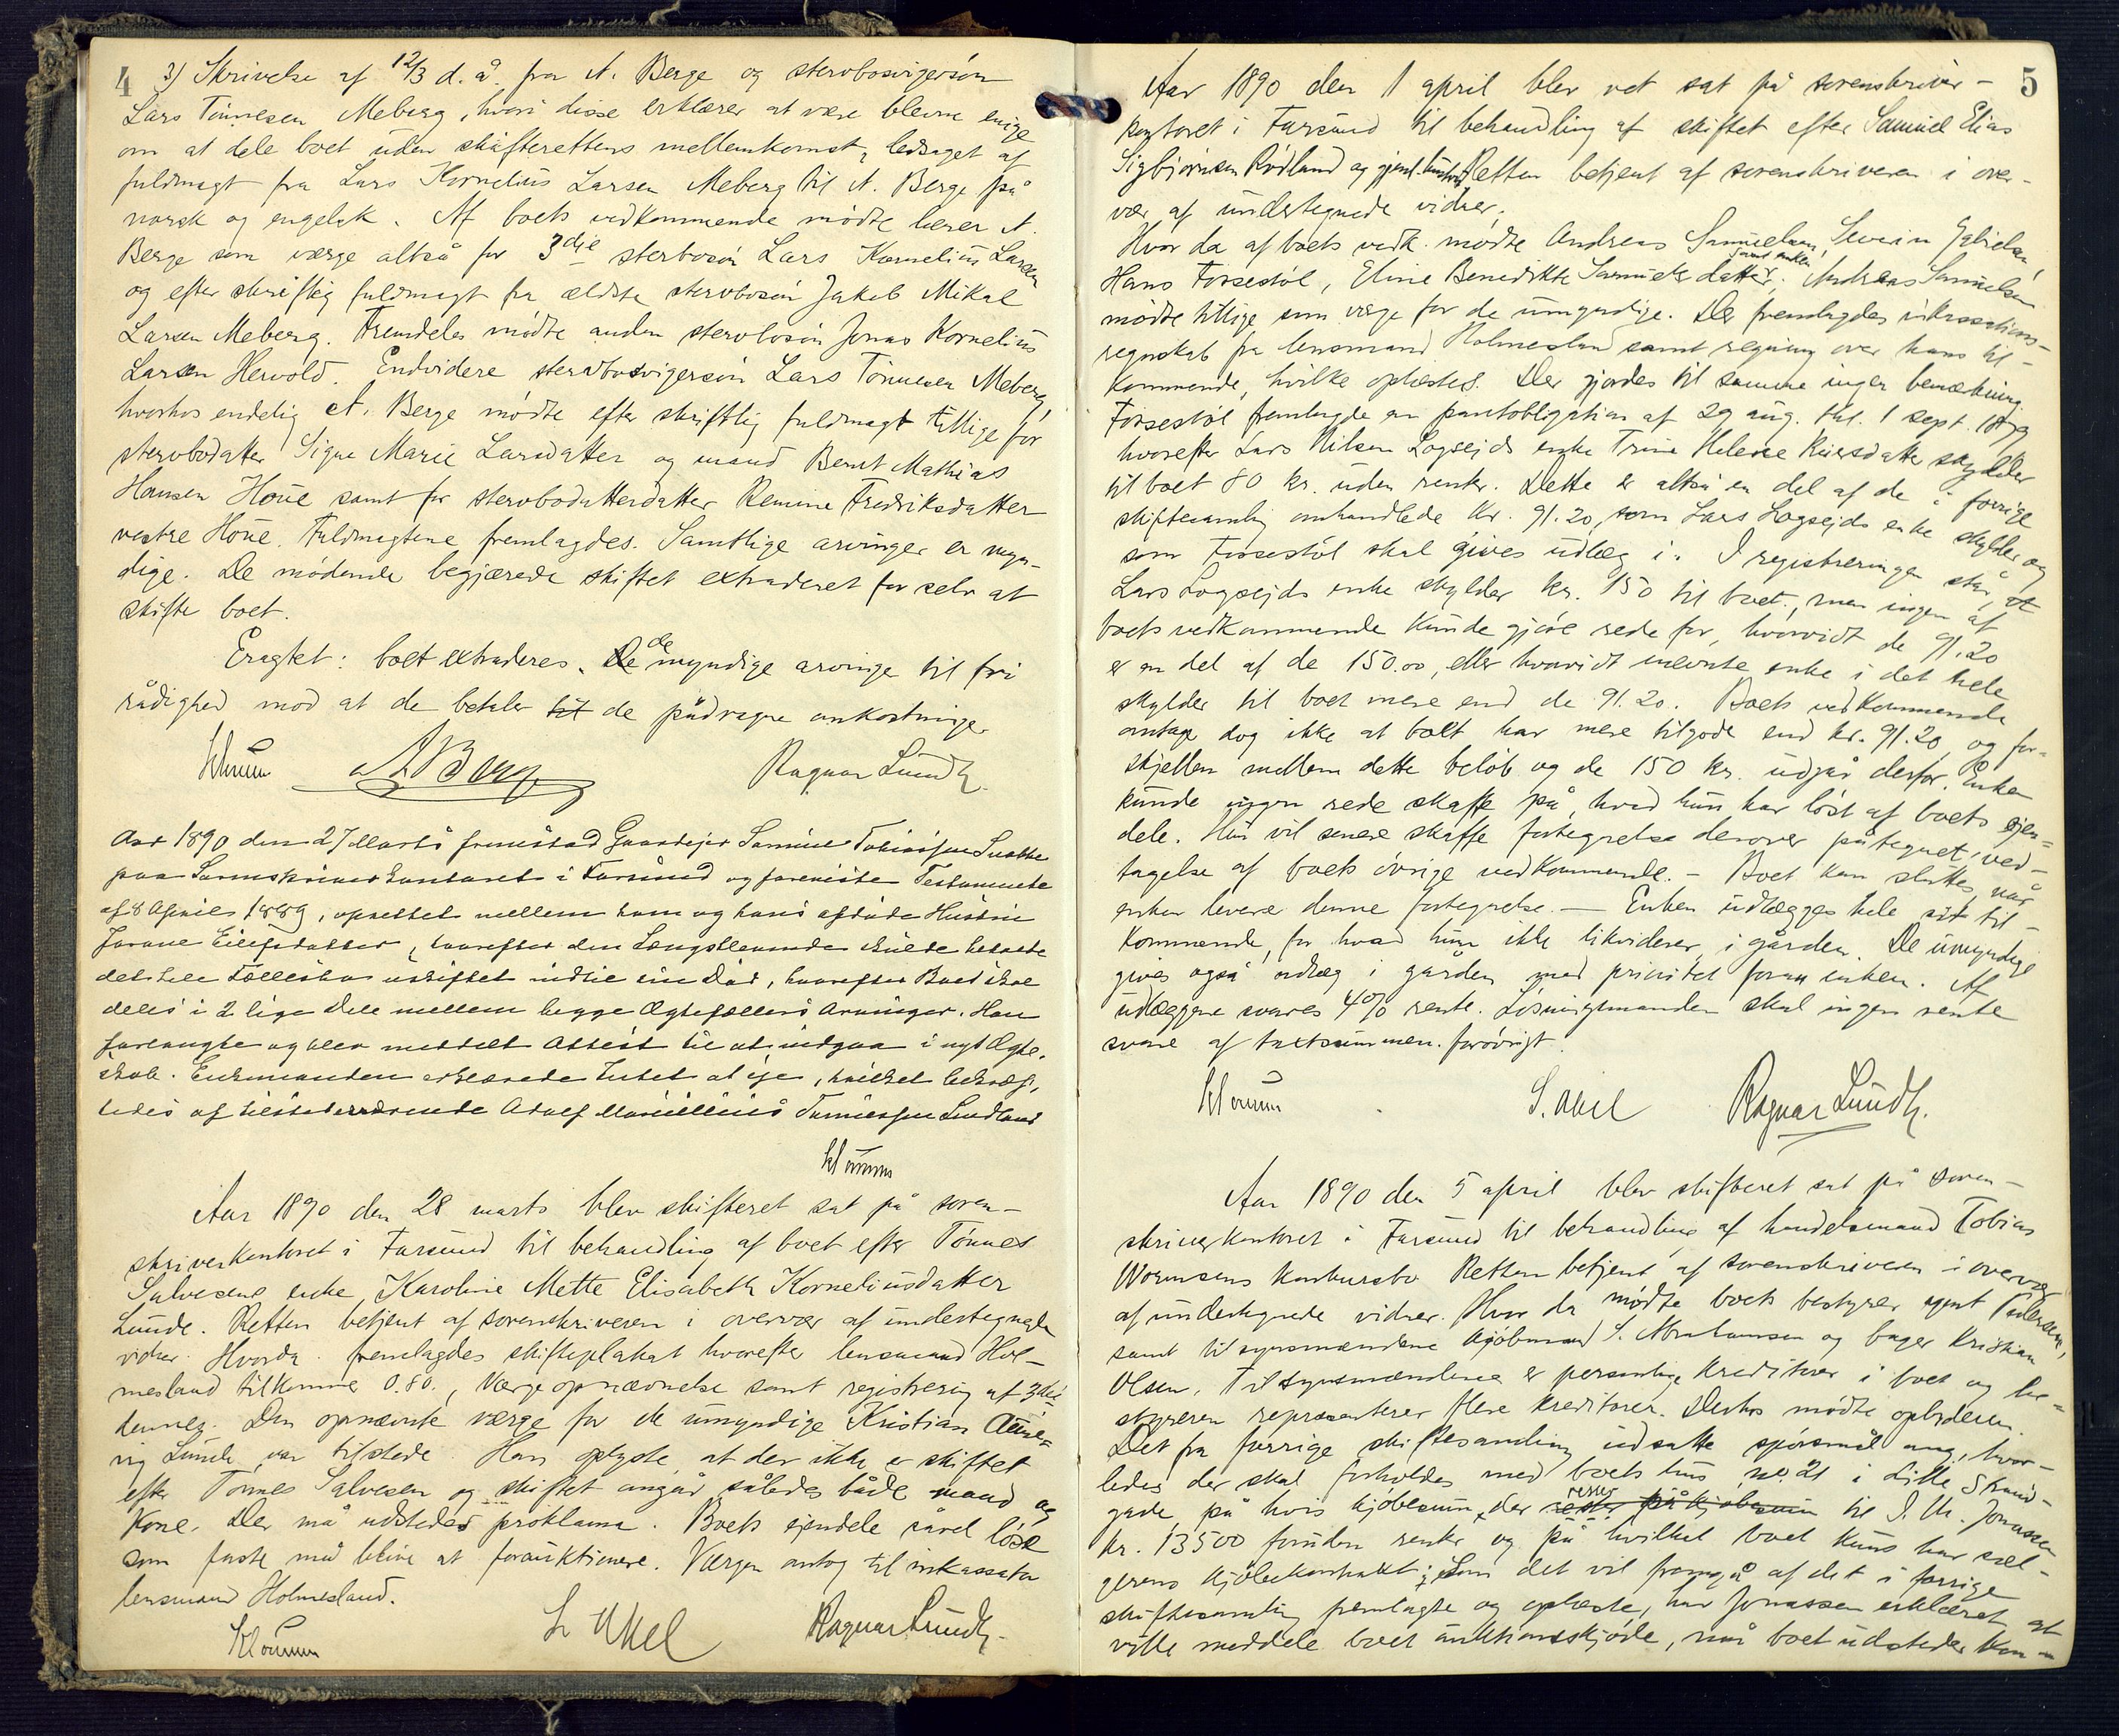 4
3) Skrivelse af 12/3 d. å. fra A. Berge og stervbosvigersön
Lars Tönnesen Meberg, hvori disse erklærer at være blevne enige
om at dele boet uden skifterettens mellemkomst, ledsaget af
fuldmagt fra Lars Kornelius Larsen Meberg til A. Berge på
norsk og engelsk. Af boets vedkommende mödte lærer A.
Berge som værge altså for 3die sterbosön Lars Kornelius Larsen
og efter skriftlig fuldmagt fra ældste stervbosön Jakob Mikal
Larsen Meberg. Fremdeles mödte anden stervbosön Jonas Kornelius
Larsen Hervold. Endvidere stervbosvigersön Lars Tönnesen Meberg,
hvorhos endelig A. Berge mödte efter skriftlig fuldmagt tillige for
stervbodatter Signe Marie Larsdatter og mand Bernt Mathias
Hansen Houe samt for stervbodatterdatter Remine Fredriksdatter
vestre Houe. Fuldmagtene fremlagdes. Samtlige arvinger er myn-
dige. De mödende begjærede skiftet extraderet for selv at
skifte boet.
Eragtet: boet extraderes de myndige arvinge til fri
rådighed mod at de betaler til de pådragne omkostninger
Klouman ABerge Ragnar Lundh.
Aar 1890 den 27 Marts fremstod Gaardejer Samuel Tobiassen
paa Sorenskriverkontoret i Farsund og foreviste Testamente
af 8 April 1889, oprettet mellem ham og hans afdöde Hustru
Jorane Eilefsdatter, hvorefter den Længstlevende skulde beholde
det hele Fællesbo uskiftet indtil sin Död, hvorefter Boet skal
deles i 2 lige Dele mellem begge Ægtefællers Arvinger. Han
forlangte og blev meddelt Attest til at indgaa i nyt Ægte-
skab. Enkemanden erklærede Intet at eje, hvilket bekræf-
tedes af tilstedeværende Adolf Tønnessen
Klouman
Aar 1890 den 28 marts blev skifteret sat på soren-
skriverkontoret i Farsund til behandling af boet efter Tönnes
Salvesens enke Karoline Mette Elisabeth Korneliusdatter
Lunde. Retten betjent af sorenskriveren i overvær af undertegnede
vidner. Hvorda fremlagdes skifteplakat hvorefter lensmand Hol-
mesland tilkommer 0.80., Værgeopnævnelse samt registrering af 3die
dennes. Den opnævnte værge for de umyndige Kristian
Lunde var tilstede. Han oplyste, at der ikke er skiftet
efter Tönnes Salvesen og skiftet angår således både mand og
kone. Der må udstedes proklama. Boets ejendele såvel löse
som faste må blive at forauktionere. Værgen antog til inkassator
lensmand Holmesland.
Klouman L. Abel Ragnar Lundh.
5
Aar 1890 den 1 april blev ret sat på sorenskriver-
kontoret i Farsund til behandling af skiftet efter Samuel Elias
Sigbjörnsen Rödland og gjenl. hustru Retten betjent af sorenskriveren i over-
vær af undertegnede vidner.
Hvor da af boets vedk. mödte Andreas Samuelsen, Severin Gabrielsen,
Hans Forsestöl, Eline Benedikte Samuelsdatter, samt enken. Andreas Samuelsen
mödte tillige som værge for de umyndige. Der fremlagdes inkassations-
regnskab fra lensmand Holmesland samt regning over hans til-
kommende, hvilke oplæstes. Der gjordes til samme ingen bemærkning.
Forsestöl fremlagde en pantobligation af 29 aug. thl. 1 sept.
hvorefter Lars Nilsen Logsejds enke Trine Helene skylder
til boet 80 kr. uden renter. Dette er altså en del af de i forrige
skiftesamling omhandlede kr. 91.20, som Lars Logsejds enke skylder og
som Forsestöl skal gives udlæg i. I registreringen står, at
Lars Logsejds enke skylder kr. 150 til boet, men ingen af
boets vedkommende kunde gjöre rede for, hvorvidt de 91.20
er en del af de 150.00, eller hvorvidt nævnte enke i det hele
skylder til boet mere end de 91.20. Boets vedkommende
antager dog ikke at boet har mere tilgode end kr. 91.20, og for-
skjellen mellem dette belöb og de 150 kr. udgår derfor. Enken
kunde ingen rede skaffe på, hvad hun har löst af boets ejen-
dele. Hun vil senere skaffe fortegnelse derover påtegnet ved-
tagelse af boets övrige vedkommende. - Boet kan sluttes, når
enken leverer denne fortegnelse. — Enken udlægges hele sit til-
kommende, for hvad hun ikke likviderer, i gården. De umyndige
gives også udlæg i gården med prioritet foran enken. Af
udlæggene svares 4% rente. Lösningsmanden skal ingen rente
svare af taxtsummen forövrigt.
Klouman L. Abel Ragnar Lundh.
Aar 1890 den 5 april blev skifteret sat på soren-
skriverkontoret i Farsund til behandling af handelsmand Tobias
Wormsens konkursbo. Retten betjent af sorenskriveren i overvær
af undertegnede vidner. Hvor da mödte boets bestyrer agent Pedersen,
samt tilsynsmændene kjöbmand S. Abrahamsen og bager Kristian
Olsen. Tilsynsmændene er personlige kreditorer i boet og be-
styreren repræsenterer flere kreditorer. Derhos mödte opbyderen.
Det fra forrige skiftesamling udsatte spörsmål ang., hvor-
ledes der skal forholdes med boets hus i Lille Strand-
gade, på hvis kjöbesum der rester til J. M. Jonassen
kr. 13500 foruden renter og på hvilket boet kuns har sæl-
gerens kjöbekontrakt; Som det vil fremgå af det i forrige
skiftesamling fremlagte og oplæste, har Jonassen erklæret at
ville meddele boet auktionsskjöde, når boet udsteder kon-